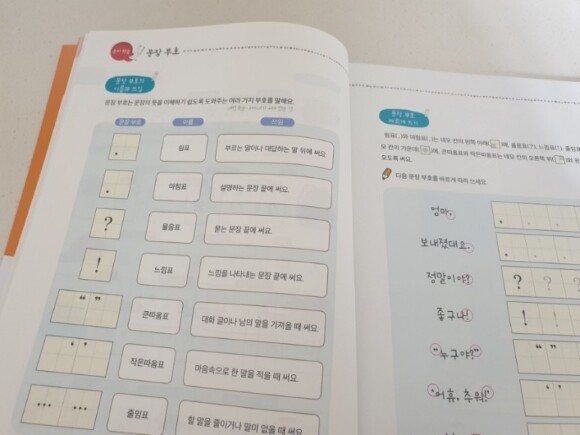 문장 부호
문장 부호의
이름과 쓰임
문장 부호는 문장의 뜻을 이해하기 쉽도록 도와주는 여러 가지 부호를 말해요
문장 부호 이름 쓰임
, 쉼표 부르는 말이나 대답하는 말 뒤에 써요.
. 마침표 설명하는 문장 끝에 써요.
? 물음표 묻는 문장 끝에 써요.
! 느낌표 느낌을 나타내는 문장 끝에 써요.
“ ” 큰따옴표 대화 글이나 남의 말을 가져올 때 써요.
‘ ’ 작은따옴표 마음속으로 한 말을 적을 때 써요.
…… 줄임표 할 말을 줄이거나 말이 없을 때 써요.
문장 부호
바르게 쓰기
다음 문장 부호를 바르게 따라 쓰세요.
엄마,
보내졌대요.
정말이야? ? ? ?
좋구나! ! ! !
“누구야?” “ ”
‘어휴, 추워!’ ‘ ’